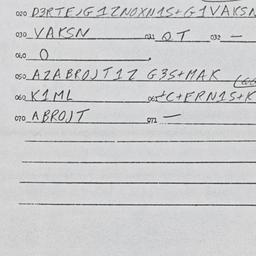 020 D3RTEJG1ZNOXN1S+G1VAKSN
030 VAKSN 031 QT 032 —
040 O
050 AZABROJT1Z G3S+MAK
060 K1ML 061 +C+FRN1S+K
070 ABROJT 071 —